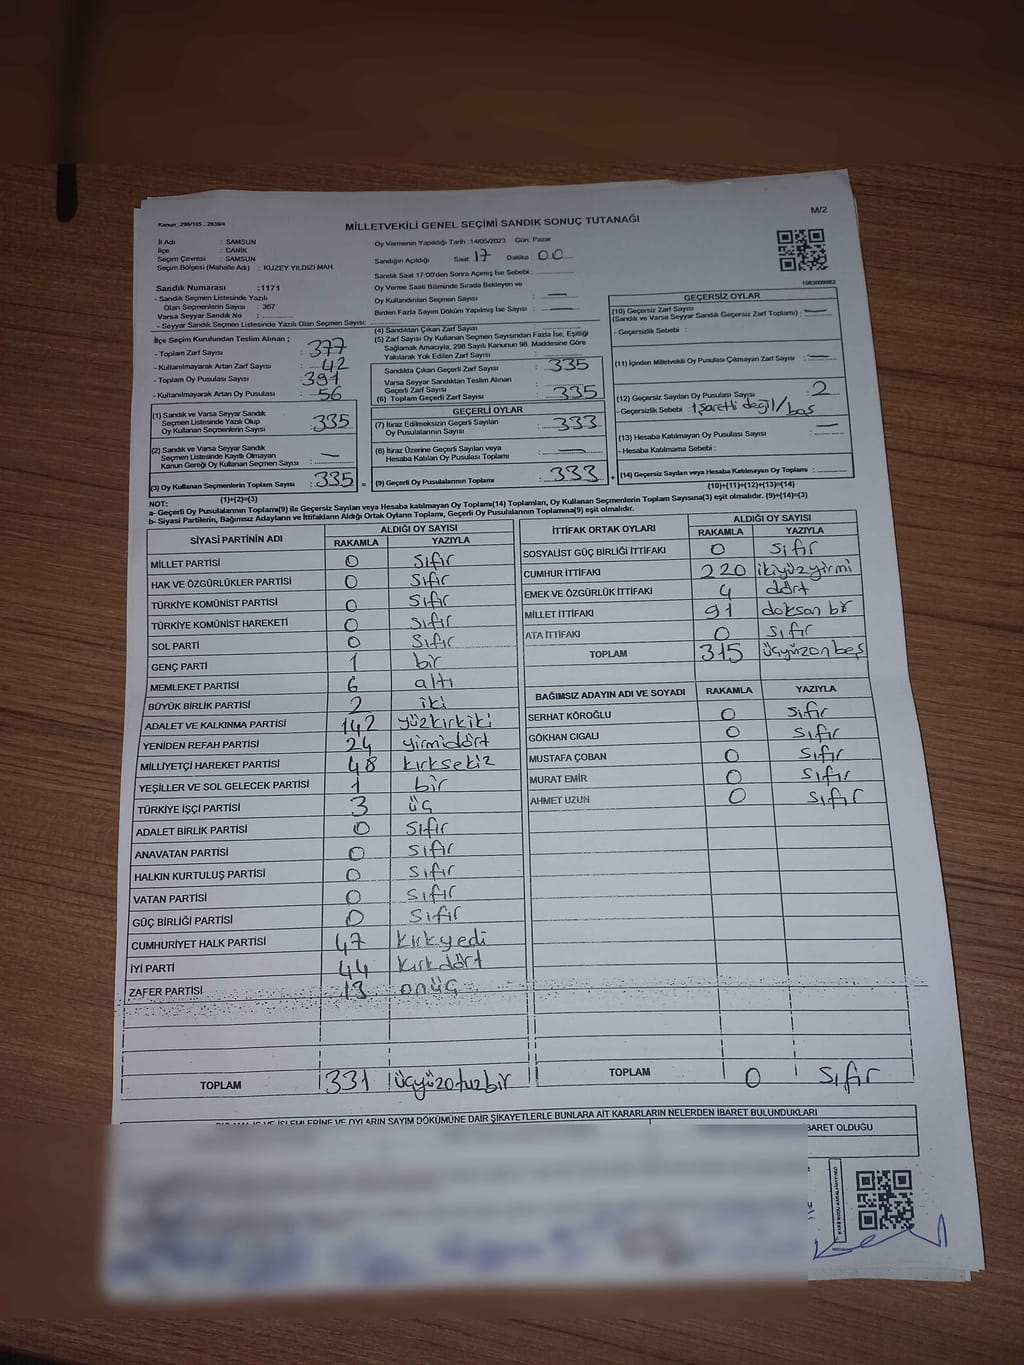 Kanun: 298/105 , 2839/4
M/2
MİLLETVEKİLİ GENEL SEÇİMİ SANDIK SONUÇ TUTANAĞI
İl Adı : SAMSUN
İlçe : CANİK
Seçim Çevresi : SAMSUN
Seçim Bölgesi (Mahalle Adı) : KUZEY YILDIZI MAH.
Sandık Numarası :1171
- Sandık Seçmen Listesinde Yazılı
Olan Seçmenlerin Sayısı : 367
Varsa Seyyar Sandık No :
- Seyyar Sandık Seçmen Listesinde Yazılı Olan Seçmen Sayısı:
İlçe Seçim Kurulundan Teslim Alınan ;
- Toplam Zarf Sayısı : 377
- Kullanılmayarak Artan Zarf Sayısı : 42
- Toplam Oy Pusulası Sayısı : 391
- Kullanılmayarak Artan Oy Pusulası : 56
(1) Sandık ve Varsa Seyyar Sandık
Seçmen Listesinde Yazılı Olup
Oy Kullanan Seçmenlerin Sayısı : 335
(2) Sandık ve Varsa Seyyar Sandık
Seçmen Listesinde Kayıtlı Olmayan
Kanun Gereği Oy Kullanan Seçmen Sayısı : —
(3) Oy Kullanan Seçmenlerin Toplam Sayısı : 335 =
(1)+(2)=(3)
Oy Vermenin Yapıldığı Tarih :14/05/2023 Gün: Pazar
Sandığın Açıldığı Saat: 17 Dakika : 00
Sandık Saat 17:00'den Sonra Açılmış İse Sebebi :
Oy Verme Saati Bitiminde Sırada Bekleyen ve
Oy Kullandırılan Seçmen Sayısı : —
Birden Fazla Sayım Döküm Yapılmış İse Sayısı : —
(4) Sandıktan Çıkan Zarf Sayısı :
(5) Zarf Sayısı Oy Kullanan Seçmen Sayısından Fazla İse, Eşitliği
Sağlamak Amacıyla; 298 Sayılı Kanunun 98. Maddesine Göre
Yakılarak Yok Edilen Zarf Sayısı :
Sandıkta Çıkan Geçerli Zarf Sayısı : 335
Varsa Seyyar Sandıktan Teslim Alınan
Geçerli Zarf Sayısı :
(6) Toplam Geçerli Zarf Sayısı : 335
GEÇERLİ OYLAR
(7) İtiraz Edilmeksizin Geçerli Sayılan
Oy Pusulalarının Sayısı : 333
(8) İtiraz Üzerine Geçerli Sayılan veya
Hesaba Katılan Oy Pusulası Toplamı : —
(9) Geçerli Oy Pusulalarının Toplamı : 333 +
GEÇERSİZ OYLAR
(10) Geçersiz Zarf Sayısı
(Sandık ve Varsa Seyyar Sandık Geçersiz Zarf Toplamı) : —
- Geçersizlik Sebebi :
(11) İçinden Milletvekili Oy Pusulası Çıkmayan Zarf Sayısı : —
(12) Geçersiz Sayılan Oy Pusulası Sayısı : 2
- Geçersizlik Sebebi : İşaretli değil/boş
(13) Hesaba Katılmayan Oy Pusulası Sayısı : —
- Hesaba Katılmama Sebebi :
(14) Geçersiz Sayılan veya Hesaba Katılmayan Oy Toplamı :
(10)+(11)+(12)+(13)=(14)
NOT:
a- Geçerli Oy Pusulalarının Toplamı(9) ile Geçersiz Sayılan veya Hesaba katılmayan Oy Toplamı(14) Toplamları, Oy Kullanan Seçmenlerin Toplam Sayısına(3) eşit olmalıdır. (9)+(14)=(3)
b- Siyasi Partilerin, Bağımsız Adayların ve İttifakların Aldığı Ortak Oyların Toplamı, Geçerli Oy Pusulalarının Toplamına(9) eşit olmalıdır.
SİYASİ PARTİNİN ADI ALDIĞI OY SAYISI
RAKAMLA YAZIYLA
MİLLET PARTİSİ 0 Sıfır
HAK VE ÖZGÜRLÜKLER PARTİSİ 0 Sıfır
TÜRKİYE KOMÜNİST PARTİSİ 0 Sıfır
TÜRKİYE KOMÜNİST HAREKETİ 0 Sıfır
SOL PARTİ 0 Sıfır
GENÇ PARTİ 1 bir
MEMLEKET PARTİSİ 6 altı
BÜYÜK BİRLİK PARTİSİ 2 iki
ADALET VE KALKINMA PARTİSİ 142 yüzkırkiki
YENİDEN REFAH PARTİSİ 24 yirmidört
MİLLİYETÇİ HAREKET PARTİSİ 48 kırksekiz
YEŞİLLER VE SOL GELECEK PARTİSİ 1 bir
TÜRKİYE İŞÇİ PARTİSİ 3 üç
ADALET BİRLİK PARTİSİ 0 sıfır
ANAVATAN PARTİSİ 0 sıfır
HALKIN KURTULUŞ PARTİSİ 0 sıfır
VATAN PARTİSİ 0 sıfır
GÜÇ BİRLİĞİ PARTİSİ 0 sıfır
CUMHURİYET HALK PARTİSİ 47 kırkyedi
İYİ PARTİ 44 kırkdört
ZAFER PARTİSİ 13 onüç
TOPLAM 331 üçyüzotuzbir
İTTİFAK ORTAK OYLARI ALDIĞI OY SAYISI
RAKAMLA YAZIYLA
SOSYALİST GÜÇ BİRLİĞİ İTTİFAKI 0 sıfır
CUMHUR İTTİFAKI 220 ikiyüzyirmi
EMEK VE ÖZGÜRLÜK İTTİFAKI 4 dört
MİLLET İTTİFAKI 91 doksan bir
ATA İTTİFAKI 0 sıfır
TOPLAM 315 üçyüzonbeş
BAĞIMSIZ ADAYIN ADI VE SOYADI RAKAMLA YAZIYLA
SERHAT KÖROĞLU 0 sıfır
GÖKHAN CIGALI 0 sıfır
MUSTAFA ÇOBAN 0 sıfır
MURAT EMİR 0 sıfır
AHMET UZUN 0 sıfır
TOPLAM 0 Sıfır
VE İŞLEMLERİNE VE OYLARIN SAYIM DÖKÜMÜNE DAİR ŞİKAYETLERLE BUNLARA AİT KARARLARIN NELERDEN İBARET BULUNDUKLARI
BARET OLDUĞU